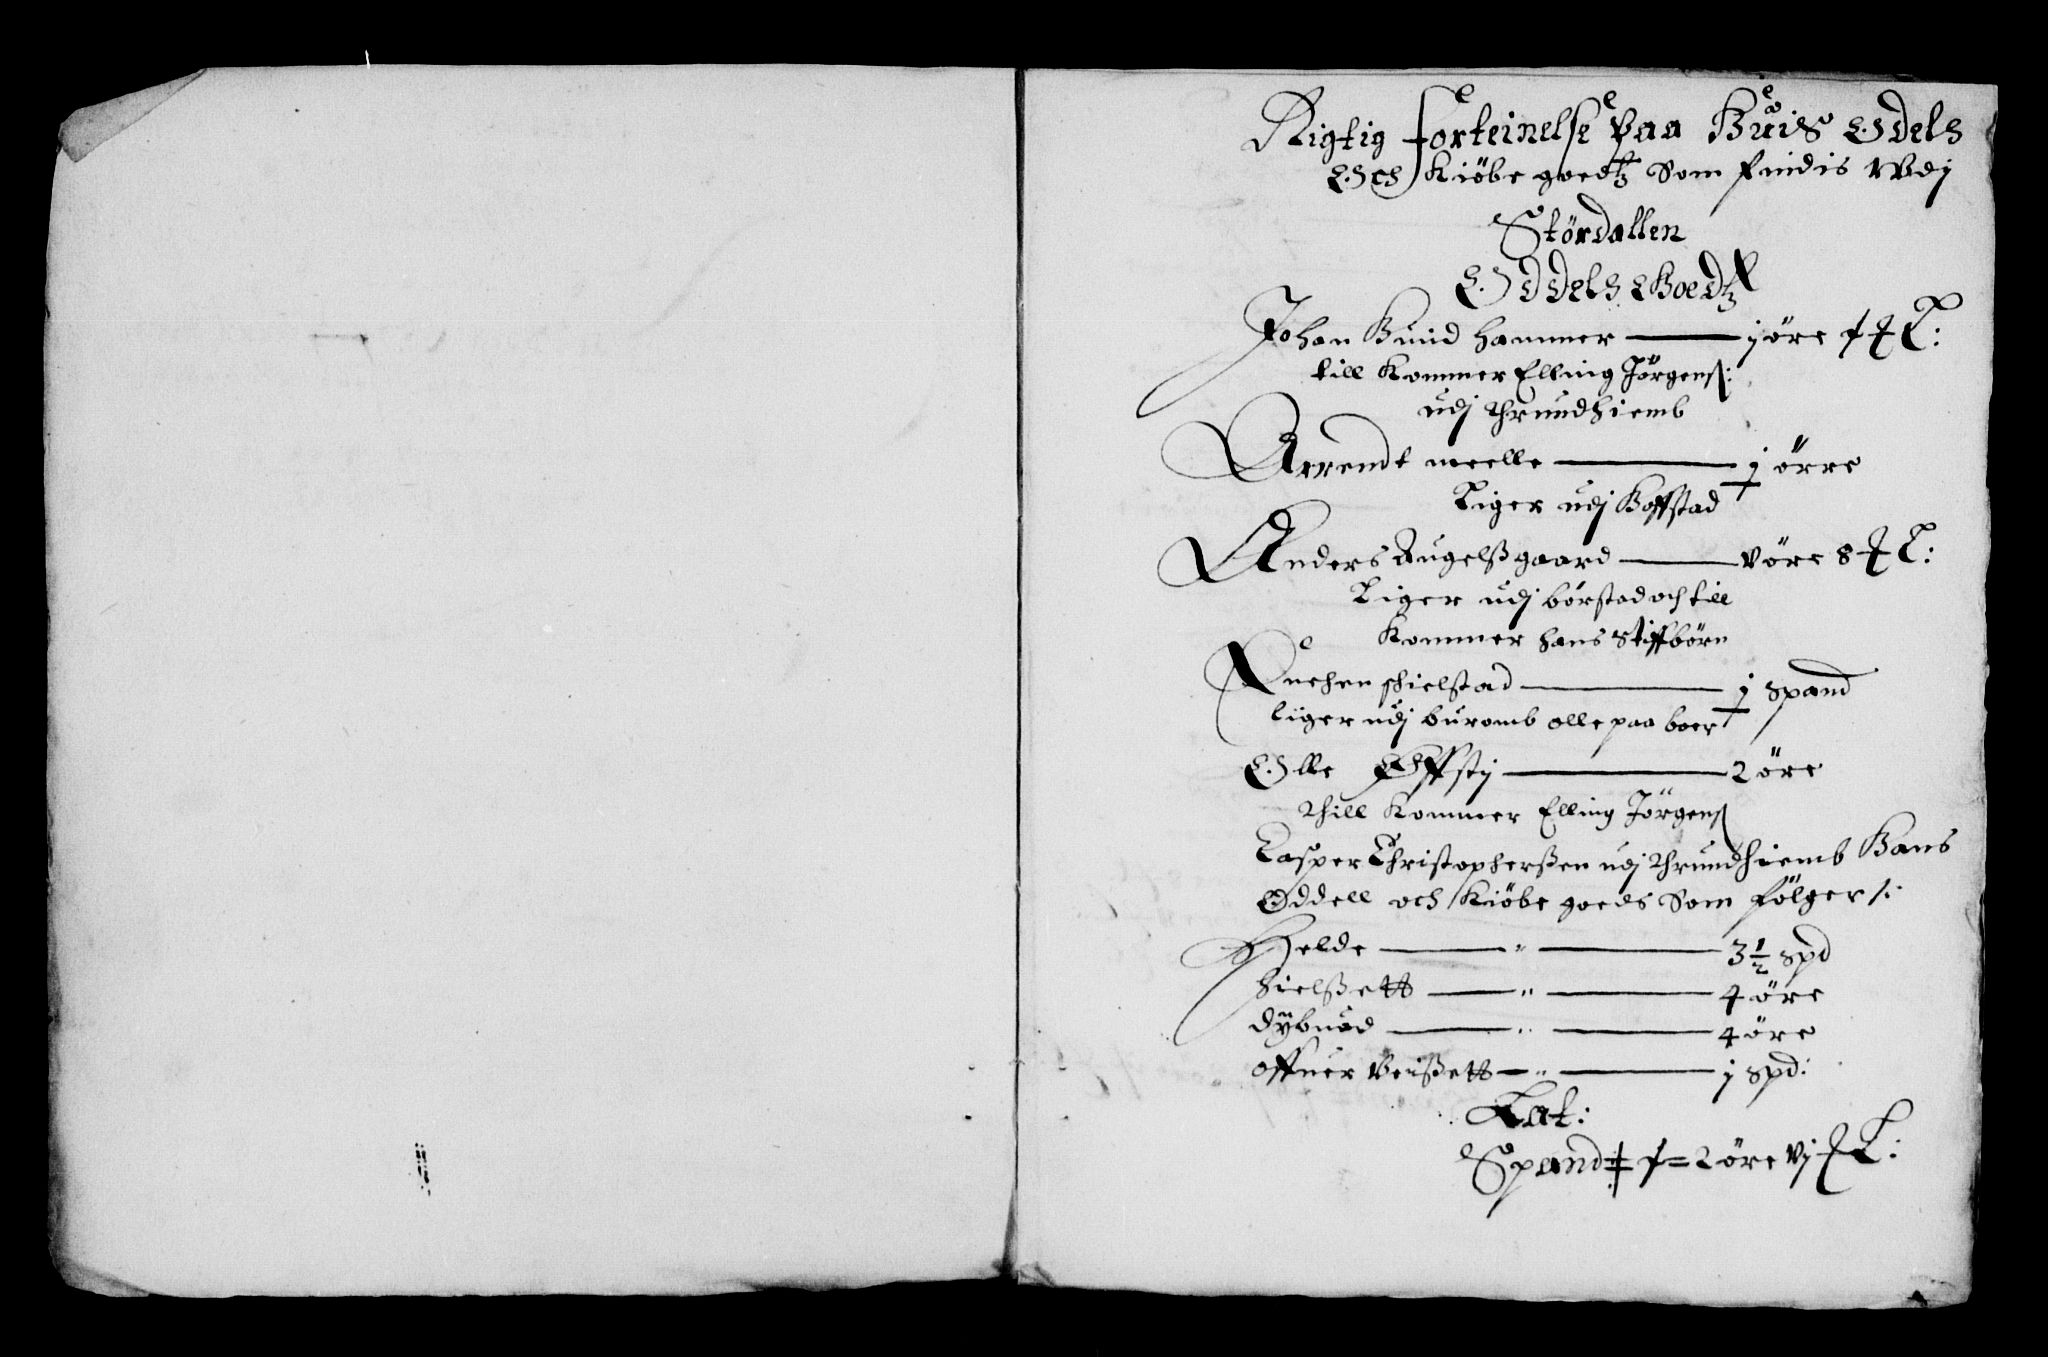 Rigtig forteinelse paa Buis Odels
Och Kiöbe goedtz som findis Vdj
Stördallen
Oddels Goedtz
Johan Buud hammer — j öre 1 # L:
till Kommer Elling Jörgens:
udj Thrundhiemb
Arrendt meelle — j örre
Liger udj Boffstad
Anders Augelßgaard — v öre 8 # L:
Liger udj börstad och till
Kommer hans Stiffbörn
schielstad — j spand
liger udj buromb olle paa boer
Olle Offsti — 2 öre
Thill Kommer Elling Jörgens
Casper Christopherßen udj Thrundhiemb Hans
Oddell och Kiöbe goeds Som fölger /:
Helde — " — 3 1/2 spd
hielßett — " — 4 öre
dÿbuad — " — 4 öre
offuer Veißett — " — j spd:
Lat:
Spand 2 öre vj # L: